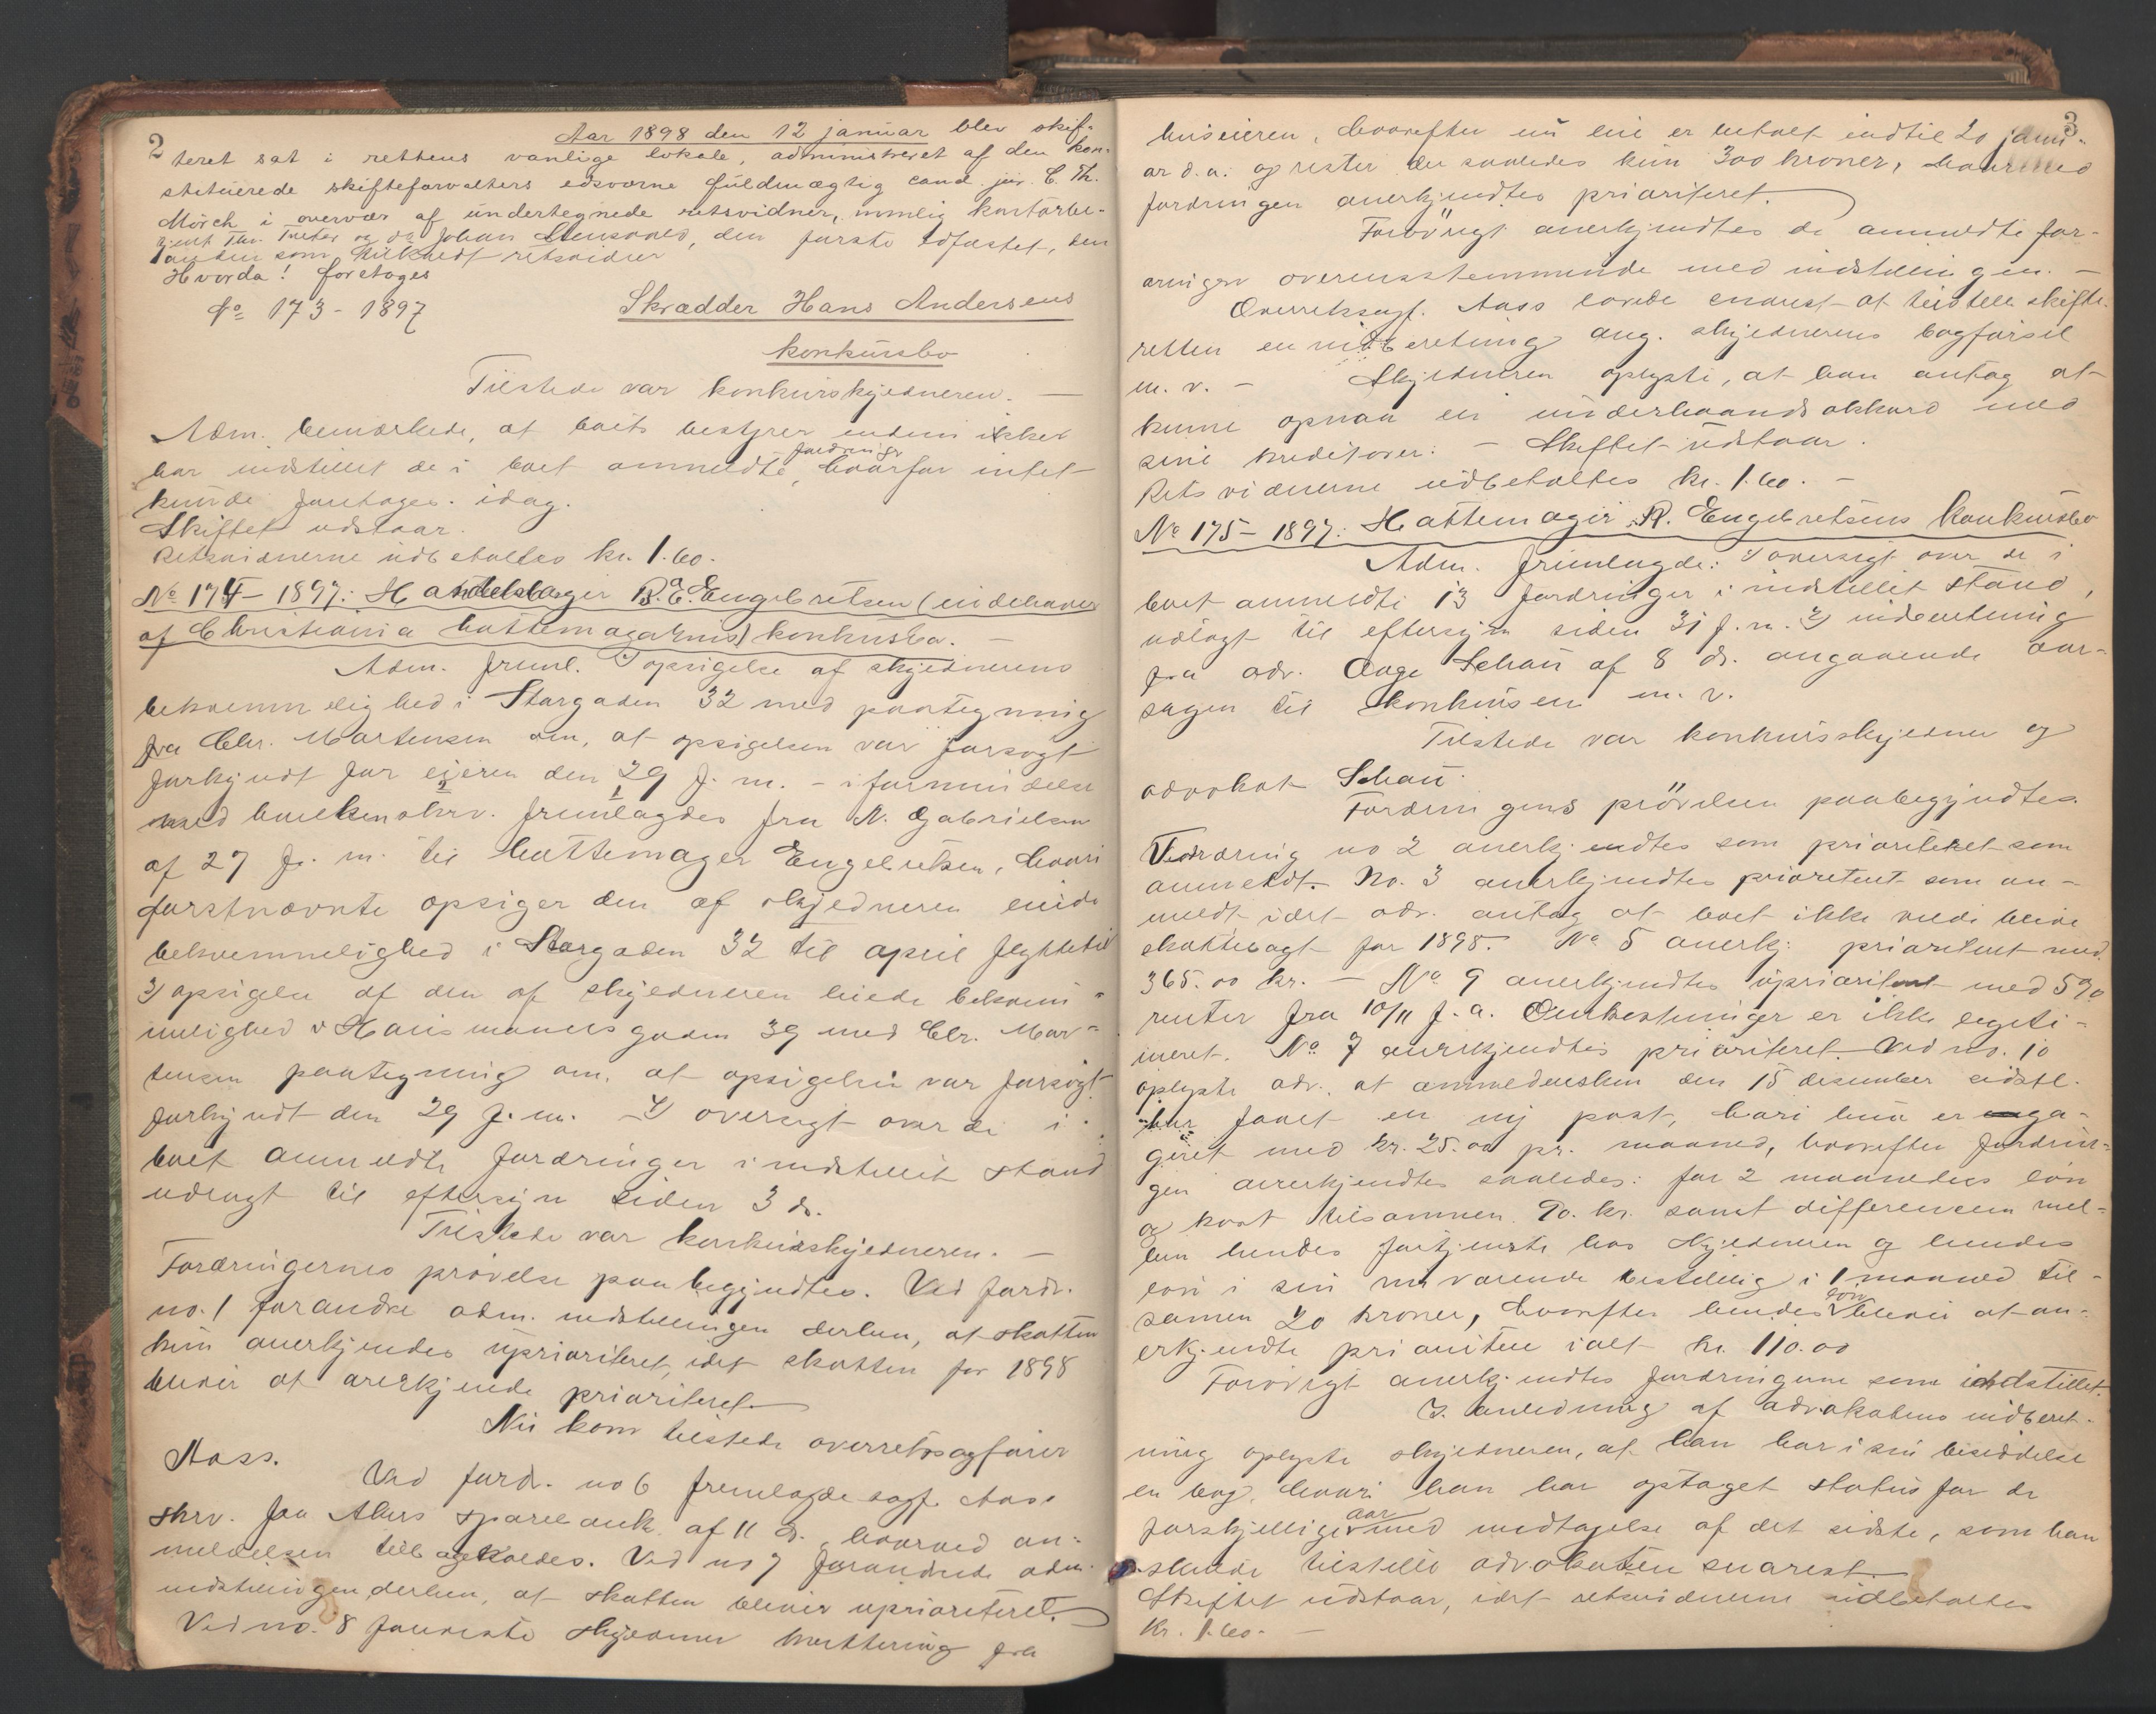 2
Aar 1898 den 12 januar blev skif-
teret sat i rettens vanlige lokale, administreret af den kon-
stituerede skifteforvalters edsvorne fuldmægtig cand. jur. C. Th.
Mörch i overvær af undertegnede retsvidner, nemlig kontorbe-
tjent Johan den første edfæstet, den
anden som retsvidner
Hvorda! foretoges
No 173 - 1897 Skrædder Hans Andersens
konkursbo
Tilstede var konkursskyldneren. —
Adm. bemærkede, at boets bestyrer endnu ikke
har indstillet de i boet anmeldte fordringer, hvorfor intet
kunde foretages idag.
Skiftet udstaar.
Retsvidnerne udbetaltes kr. 1.60.
No 174 - 1897: R. E. Engebretsen (indehaver
af Christiania hattemagasins) konkursbo. —
Adm. freml. 1) opsigelse af skyldnerens
bekvemmelighed i Storgaden 32 med paategning
fra Chr. Martensen om, at opsigelsen var forsøgt
forkyndt for eieren den 29 f. m. - i forbindelse
med hvilken skrv. fremlagdes fra N. Gabrielsen
af 27 f. m. til hattemager Engebretsen, hvori
førstnævnte opsiger den af skyldneren leiede
bekvemmelighed i Storgaden 32 til april flyttetid
3) opsigelse af den af skyldneren leiede bekvem-
melighed i Hausmannsgaden 39 med Chr. Mar-
tensen paategning om, at opsigelsen var forsøgt
forkyndt den 29 f. m. 4) oversigt over de i
boet anmeldte fordringer i indstillet stand
udlagt til eftersyn siden 3 ds.
Tilstede var konkursskyldneren. —
Fordringernes prøvelse paabegyndtes. Ved fordr.
no. 1 forandre adm. indstillingen derhen, at skatten
kun anerkjendes uprioriteret, idet skatten for 1898
bliver at anerkjende prioriteret.
Nu kom tilstede overretssagfører
Aass. Ved fordr. no 6 fremlagde sagf. Aass
skrv. fra Akers sparebank af 11 ds. hvorved an-
meldelsen tilbagekaldes. Ved no 7 forandrede adm.
indstillingen derhen, at skatten bliver uprioriteret.
Ved no. 8 foreviste skyldner kvittering fra
3
huseieren, hvorefter nu leie er betalt indtil 20 janu-
ar d. a. og rester der saaledes kun 300 kroner, hvormed
fordringen anerkjendtes prioriteret.
Forøvrigt anerkjendtes de anmeldte for-
dringer overensstemmende med indstillingen. —
Overretssagf. Aass lovede snarest at tilstille skifte-
retten en indberetning ang. skyldnerens bogførsel
m. v. — Skyldneren oplyste, at han antog at
kunne opnaa en underhaandsakkord med
sine kreditorer. — Skiftet udstaar.
Retsvidnerne udbetaltes kr. 1.60. —
No 175 - 1897. Hattemager R. Engebretsens konkursbo
Adm. fremlagde: 1) oversigt over de i
boet anmeldte 13 fordringer i indstillet stand,
udlagt til eftersyn siden 31 f. m. 2) indberetning
fra adv. Aage Schou af 8 ds. angaaende aar-
sagen til konkursen m. v.
Tilstede var konkursskyldner og
advokat Schou.
Fordringens prøvelse paabegyndtes.
Fordring no 2 anerkjendtes som prioriteret som
anmeldt. No. 3 anerkjendtes prioriteret som an-
meldt idet adv. antog at boet ikke vilde blive
skattelagt for 1898. No 5 anerkj. prioriteret med
365.00 kr. — No 9 anerkjendtes uprioriteret med 5%
renter fra 10/11 f. a. Omkostninger er ikke legiti-
meret. No 7 anerkjendtes prioriteret. Ved no. 10
oplyste adv. at anmeldersken den 15 desember sidstl.
har faaet en ny post, hvori hun er enga-
geret med kr. 25.00 pr. maaned, hvorefter fordrin-
gen anerkjendtes saaledes: for 2 maaneders løn
og kost tilsammen 90. kr. samt differencen mel-
lem hendes fortjeneste hos skyldneren og hendes
løn i sin nuværende bestilling i 1 maaned til-
samen 20 kroner, hvorefter hendes løn bliver at an-
erkjendte prioritere ialt kr. 110.00
Forøvrigt anerkjendtes fordringerne som indstillet.
I anledning af advokatens indberet-
ning oplyste skyldneren, at han har i sin besiddelse
en bog, hvori han har optaget status for de
forskjellige aar med undtagelse af det sidste, som han
skulde tilstille advokaten snarest.
Skiftet udstaar, idet retsvidnerne udbetaltes
kr. 1.60. —